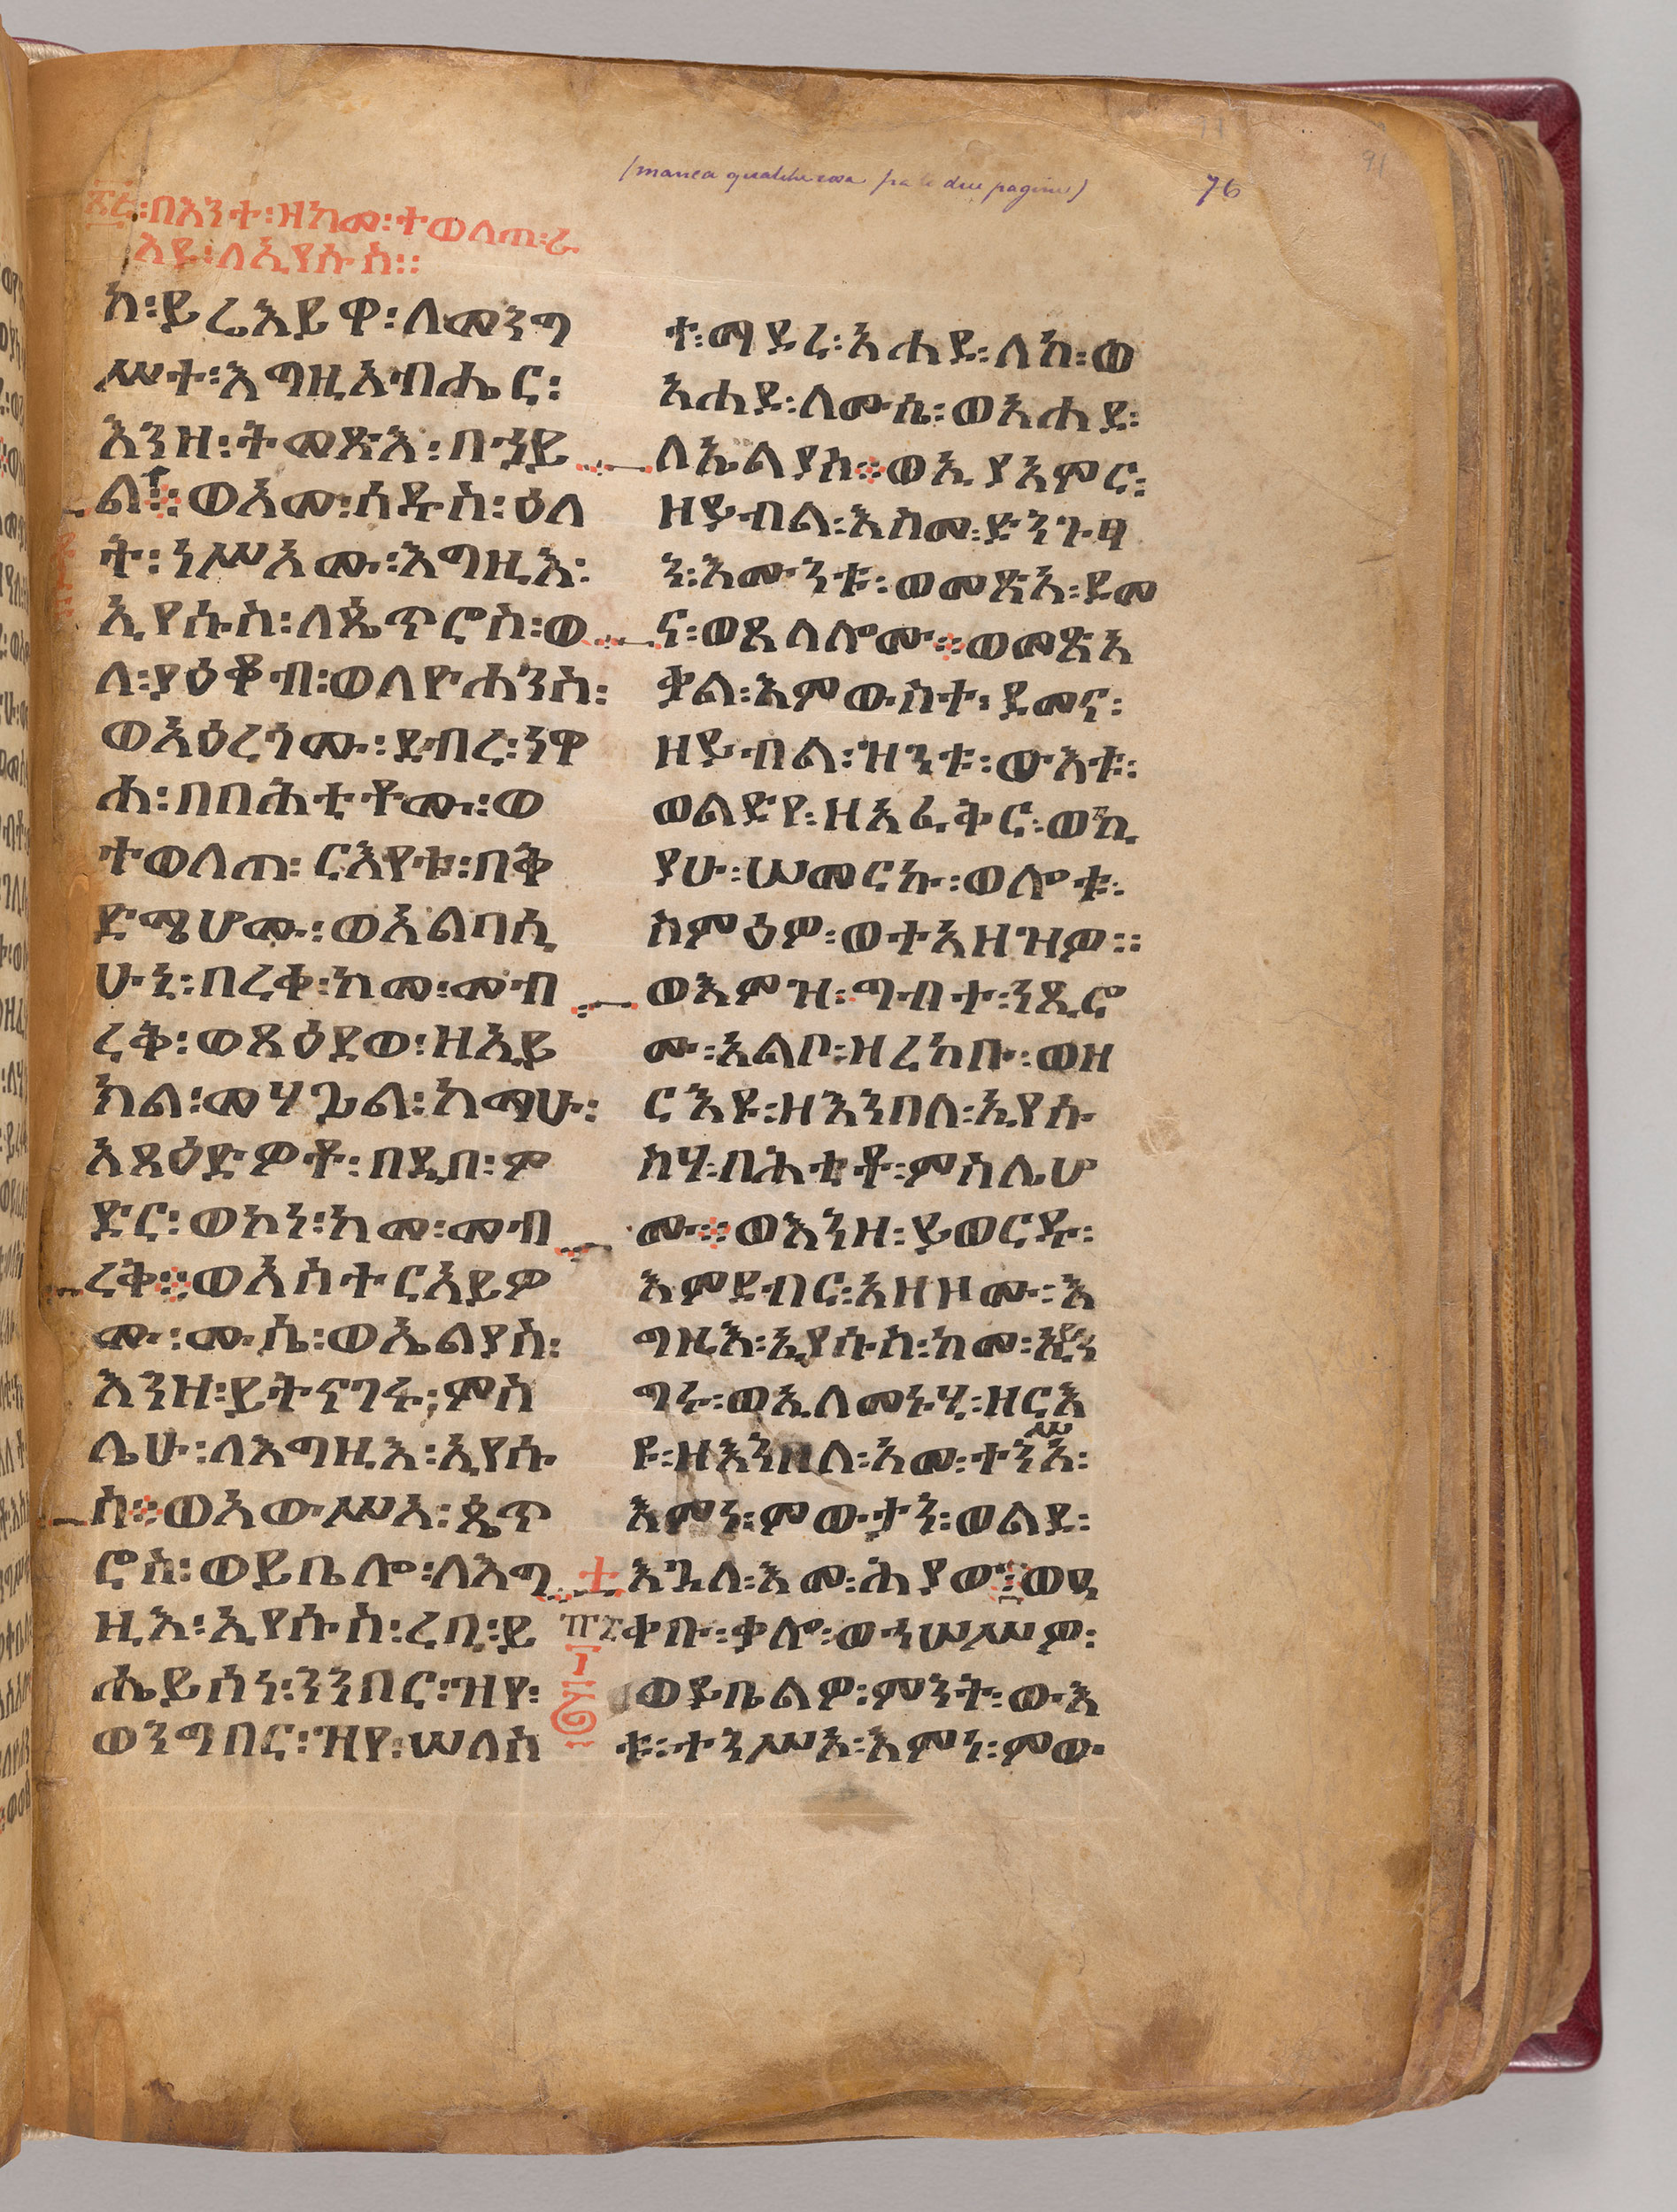 (manca qualche cosa fra le due pagine)
76
91
በእንተ፡ዘከመ፡ተወለጠ፡ራ
እዩ፡ለኢየሱስ።
ከ፡ይሬእይዋ፡ለመንግ
ሥተ፡እግዚአብሔር፡
እንዘ፡ትመጽእ፡በኃይ
ል፡ወአመ፡ሰዱስ፡ዕለ
ት፡ነሥአሙ፡እግዚእ፡
ኢየሱስ፡ለጴጥሮስ፡ወ
ለ፡ያዕቆብ፡ወለዮሐንስ፡
ወአዕረጎሙ፡ደብረ፡ነዋ
ሐ፡በበሕቲቶሙ፡ወ
ተወለጠ፡ርእየቱ፡በቅ
ድሜሆሙ፡ወአልባሲ
ሁኒ፡በረቀ፡ከመ፡መብ
ረቅ፡ወጸዕደወ፡ዘኢይ
ክል፡መሃጊል፡ከማሁ፡
አጸዕድዎቶ፡በዲበ፡ም
ድር፡ወኮነ፡ከመ፡መብ
ረቅ፨ወአስተርአይዎ
ሙ፡ሙሴ፡ወኤልያስ፡
እንዘ፡ይትናገሩ፡ምስ
ሌሁ፡ለእግዚእ፡ኢየሱ
ስ፨ወአውሥአ፡ጴጥ
ሮስ፡ወይቤሎ፡ለእግ
ዚእ፡ኢየሱስ፡ረቢ፡ይ
ሔይሰነ፡ንንበር፡ዝየ፡
ወንግበር፡ዝየ፡ሠለስ
ተ፡ማይረ፡አሐደ፡ለከ፡ወ
አሐደ፡ለሙሴ፡ወአሐደ፡
ለኤልያስ፨ወኢያአምር፡
ዘይብል፡እስመ፡ድንጉፃ
ን፡እሙንቱ፡ወመጽአ፡ደመ
ና፡ወጸለሎሙ፨ወመጽአ
ቃል፡እምውስተ፡ደመና፡
ዘይብል፡ዝንቱ፡ውእቱ፡
ወልድየ፡ዘአፈቅር፡ወኪ
ያሁ፡ሠመርኩ፡ወሎቱ፡
ስምዕዎ፡ወተአዘዝዎ።
ወእምዝ፡ግብተ፡ነጺሮ
ሙ፡አልቦ፡ዘረከቡ፡ወዘ
ርእዩ፡ዘእንበለ፡ኢየሱ
ስሃ፡በሕቲቶ፡ምስሌሆ
ሙ፨ወእንዘ፡ይወርዱ፡
እምደብር፡አዘዞሙ፡እ
ግዚእ፡ኢያሱስ፡ከመ፡ኢይን
ግሩ፡ወኢለመኑሂ፡ዘርእ
ዩ፡ዘእንበለ፡አመ፡ተንሥአ፡
እምነ፡ምውታን፡ወልደ፡
እጓለ፡እመ፡ሕያው፨ወዐ
ቀቡ፡ቃሎ፡ወኃሠሥዎ፡
ወይቤልዎ፡ምንት፡ውእ
ቱ፡ተንሥአ፡እምነ፡ምው